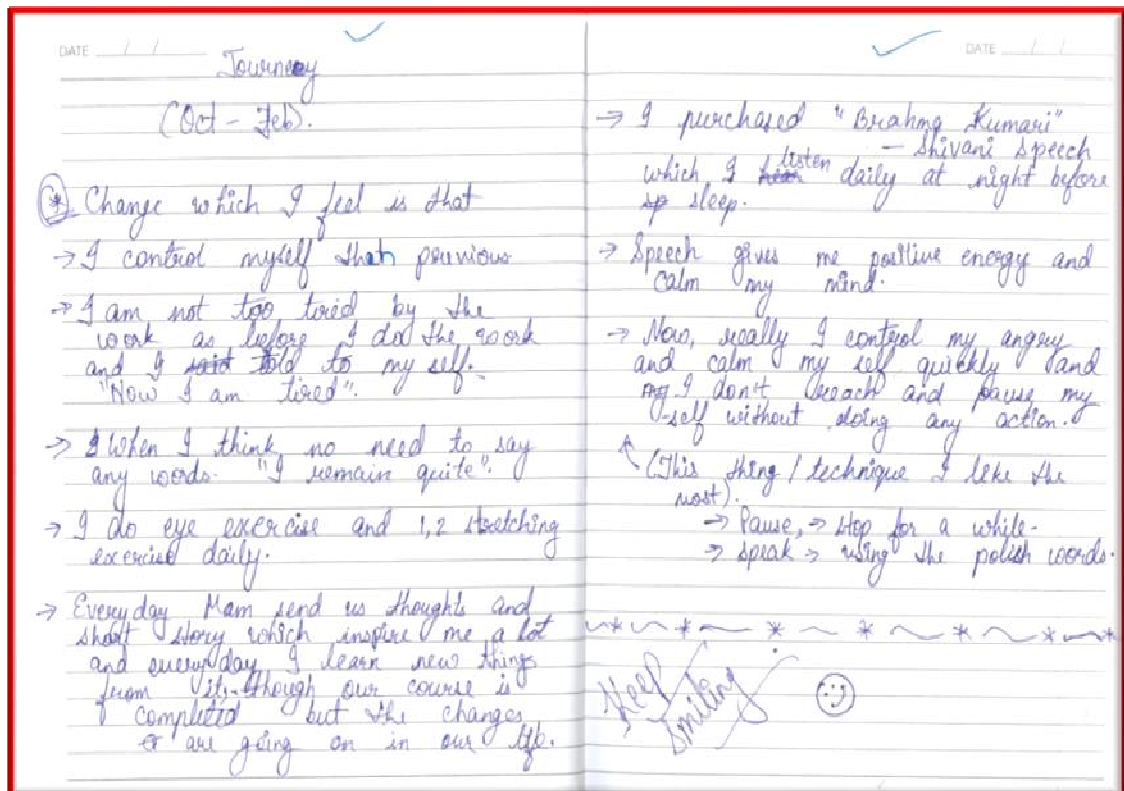 DATE / /
Journey
(Oct - Feb).
* Change which I feel is that
→ I control myself than pervious
→ I am not too tired by the
work as before I do the work
and I said told to my self.
"Now I am tired".
→ When I think no need to say
any words. "I remain quite".
→ I do eye exercise and 1,2 stretching
exercise daily.
→ Everyday Mam send us thoughts and
short story which inspire me a lot
and everyday I learn new things
from its though our course is
completed but the changes
are going on in our life.
DATE / /
→ I purchased "Brahma Kumari"
- Shivani speech
which I hear listen daily at night before
sp sleep.
→ Speech gives me positive energy and
calm my mind.
→ Now, really I control my angry
and calm my self quickly and
I don't reach and pause my
-self without doing any action.
(This thing / technique I like the
most).
→ Pause, → stop for a while.
→ speak → using the polish words.
Keep
Smiling